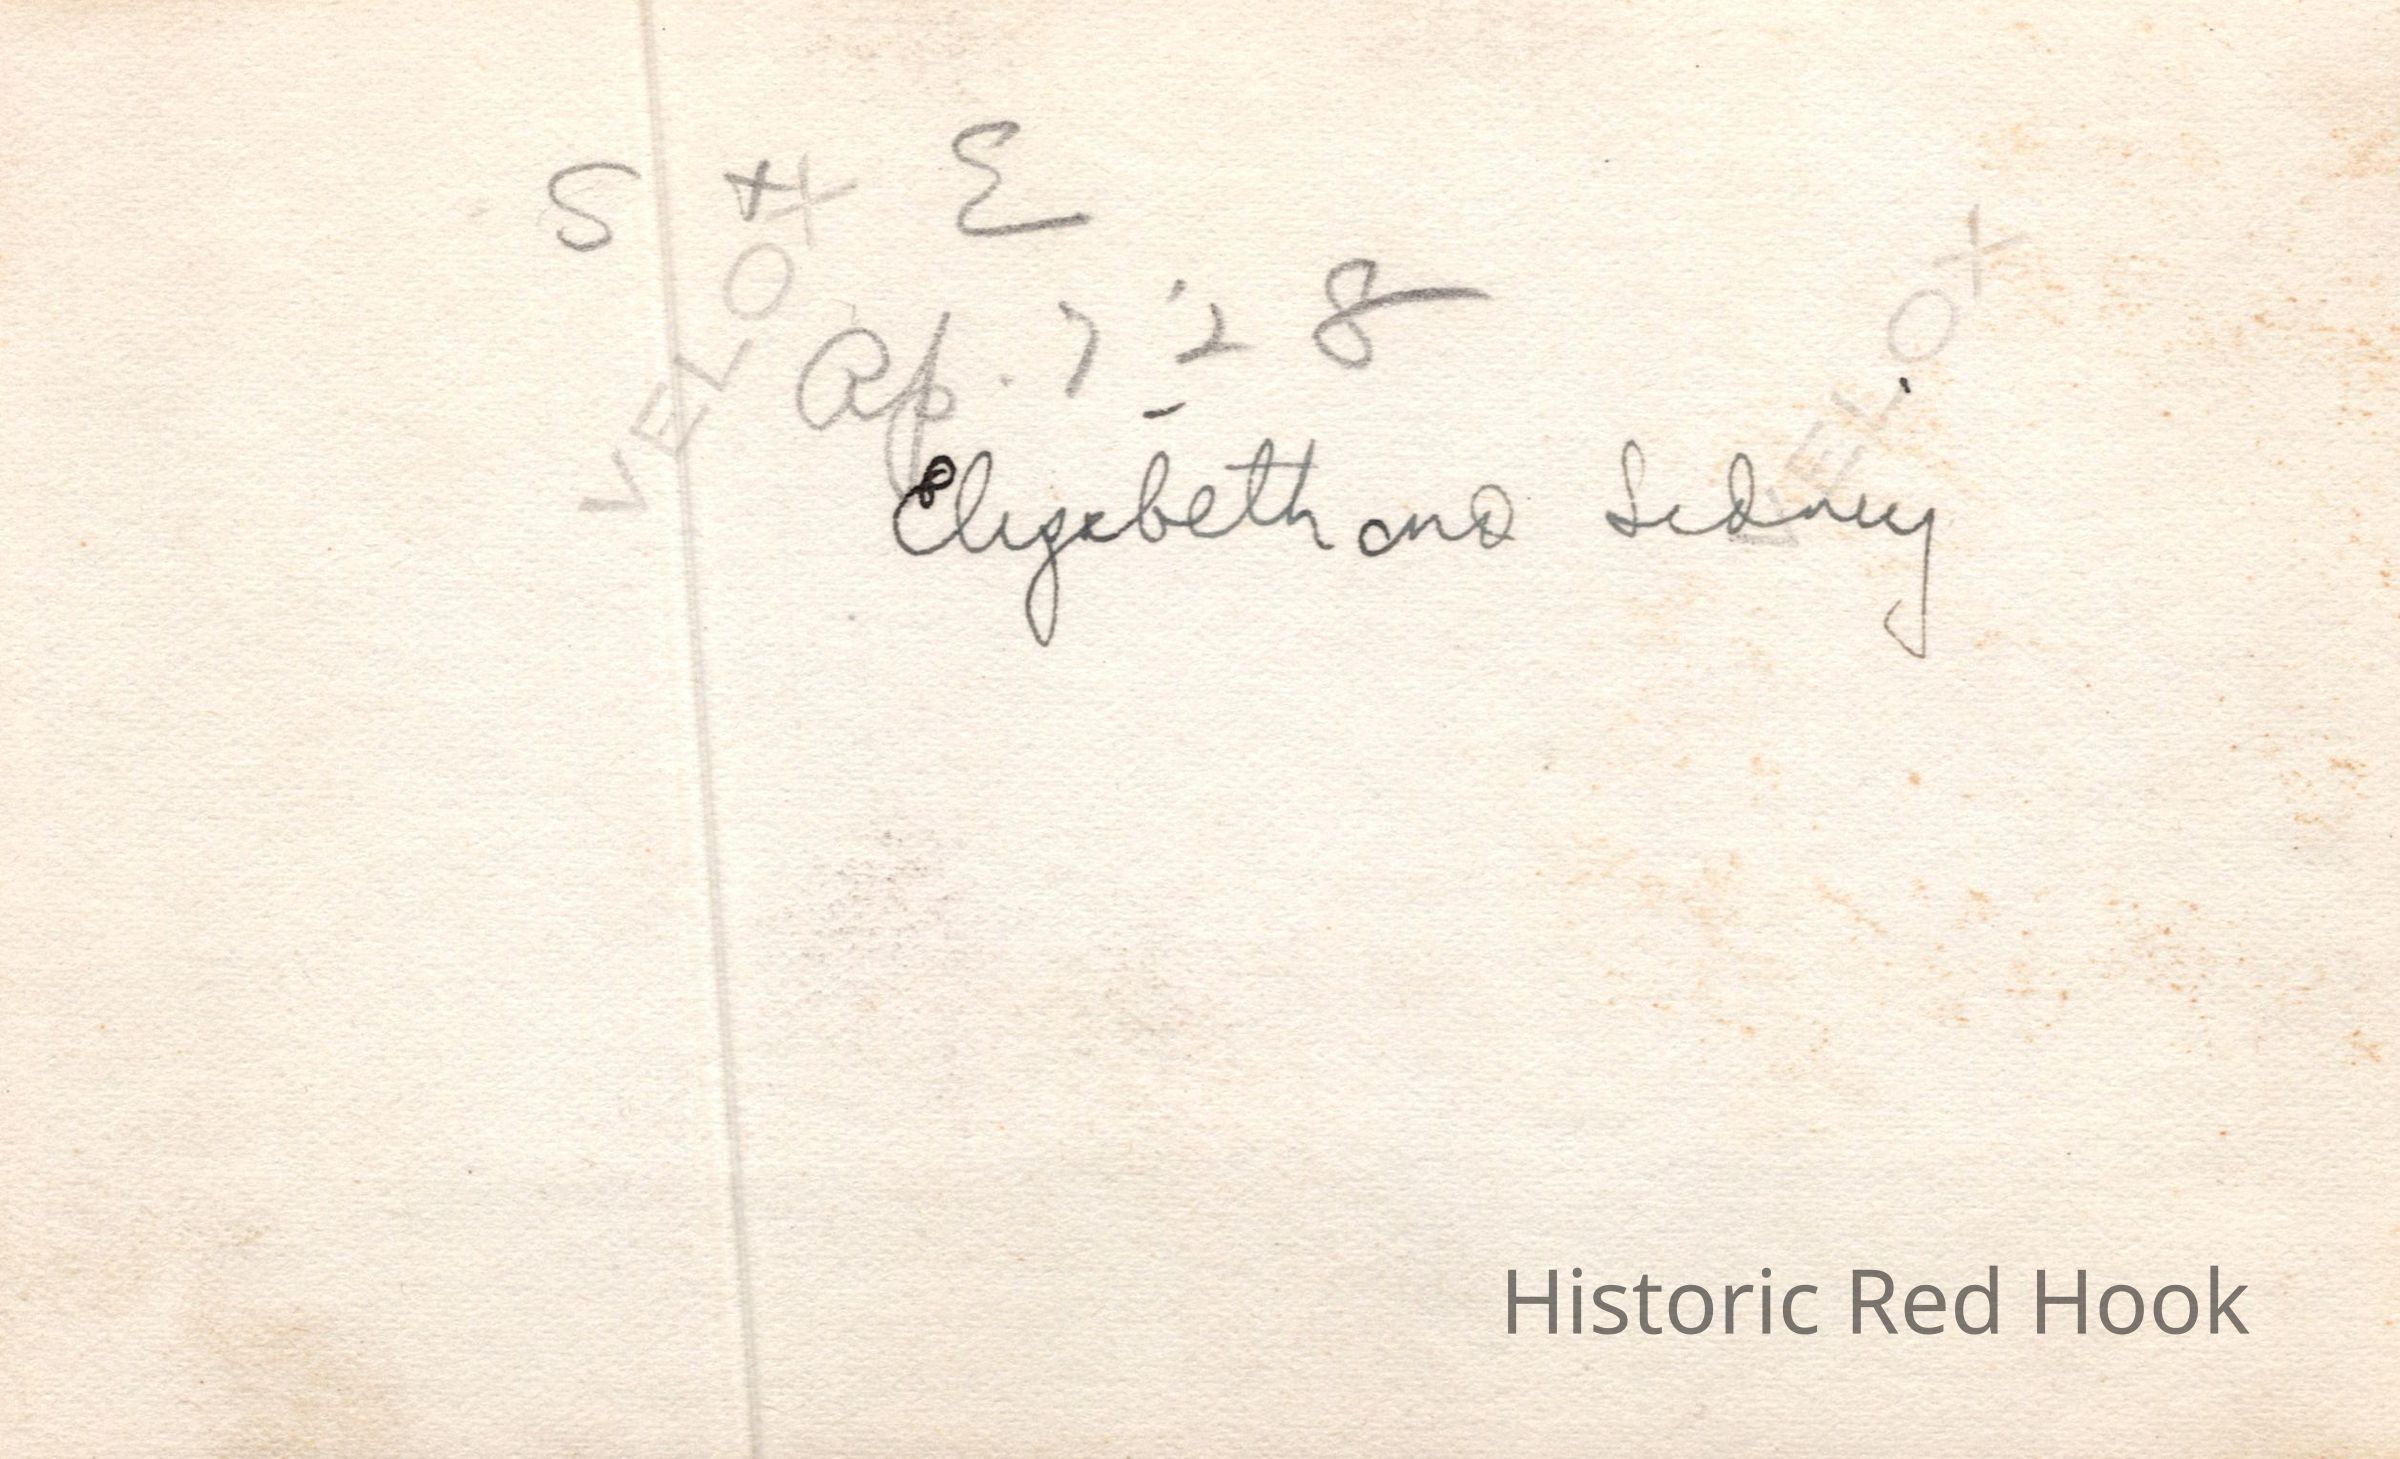 S + E
Ap. 7 '28
Elizabeth and Sidney
VELOX
VELOX
Historic Red Hook